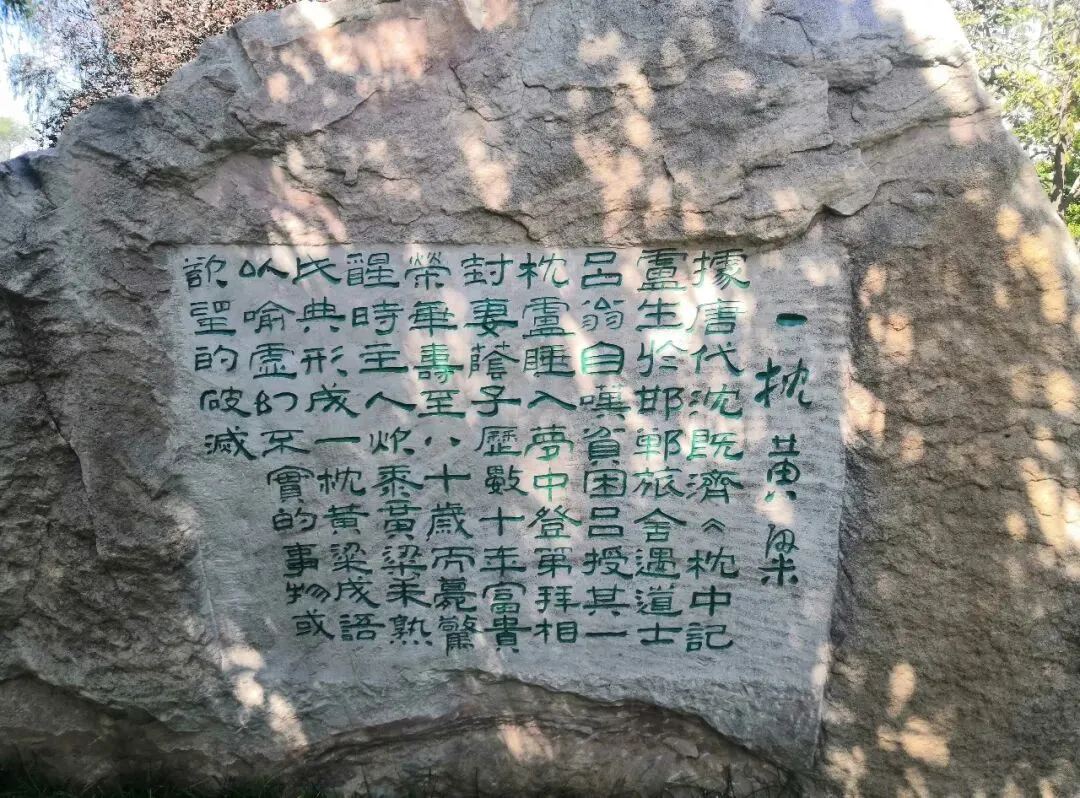 一枕黃粱
據唐代沈既濟《枕中記
盧生於邯鄲旅舍遇道士
呂翁自嘆貧困呂授其一
枕盧睡入夢中登第拜相
封妻蔭子歷數十年富貴
榮華壽至八十歲而薨驚
醒時主人炊黍黃粱未熟
氏典形成一枕黃粱成語
以喻虛幻不實的事物或
欲望的破滅